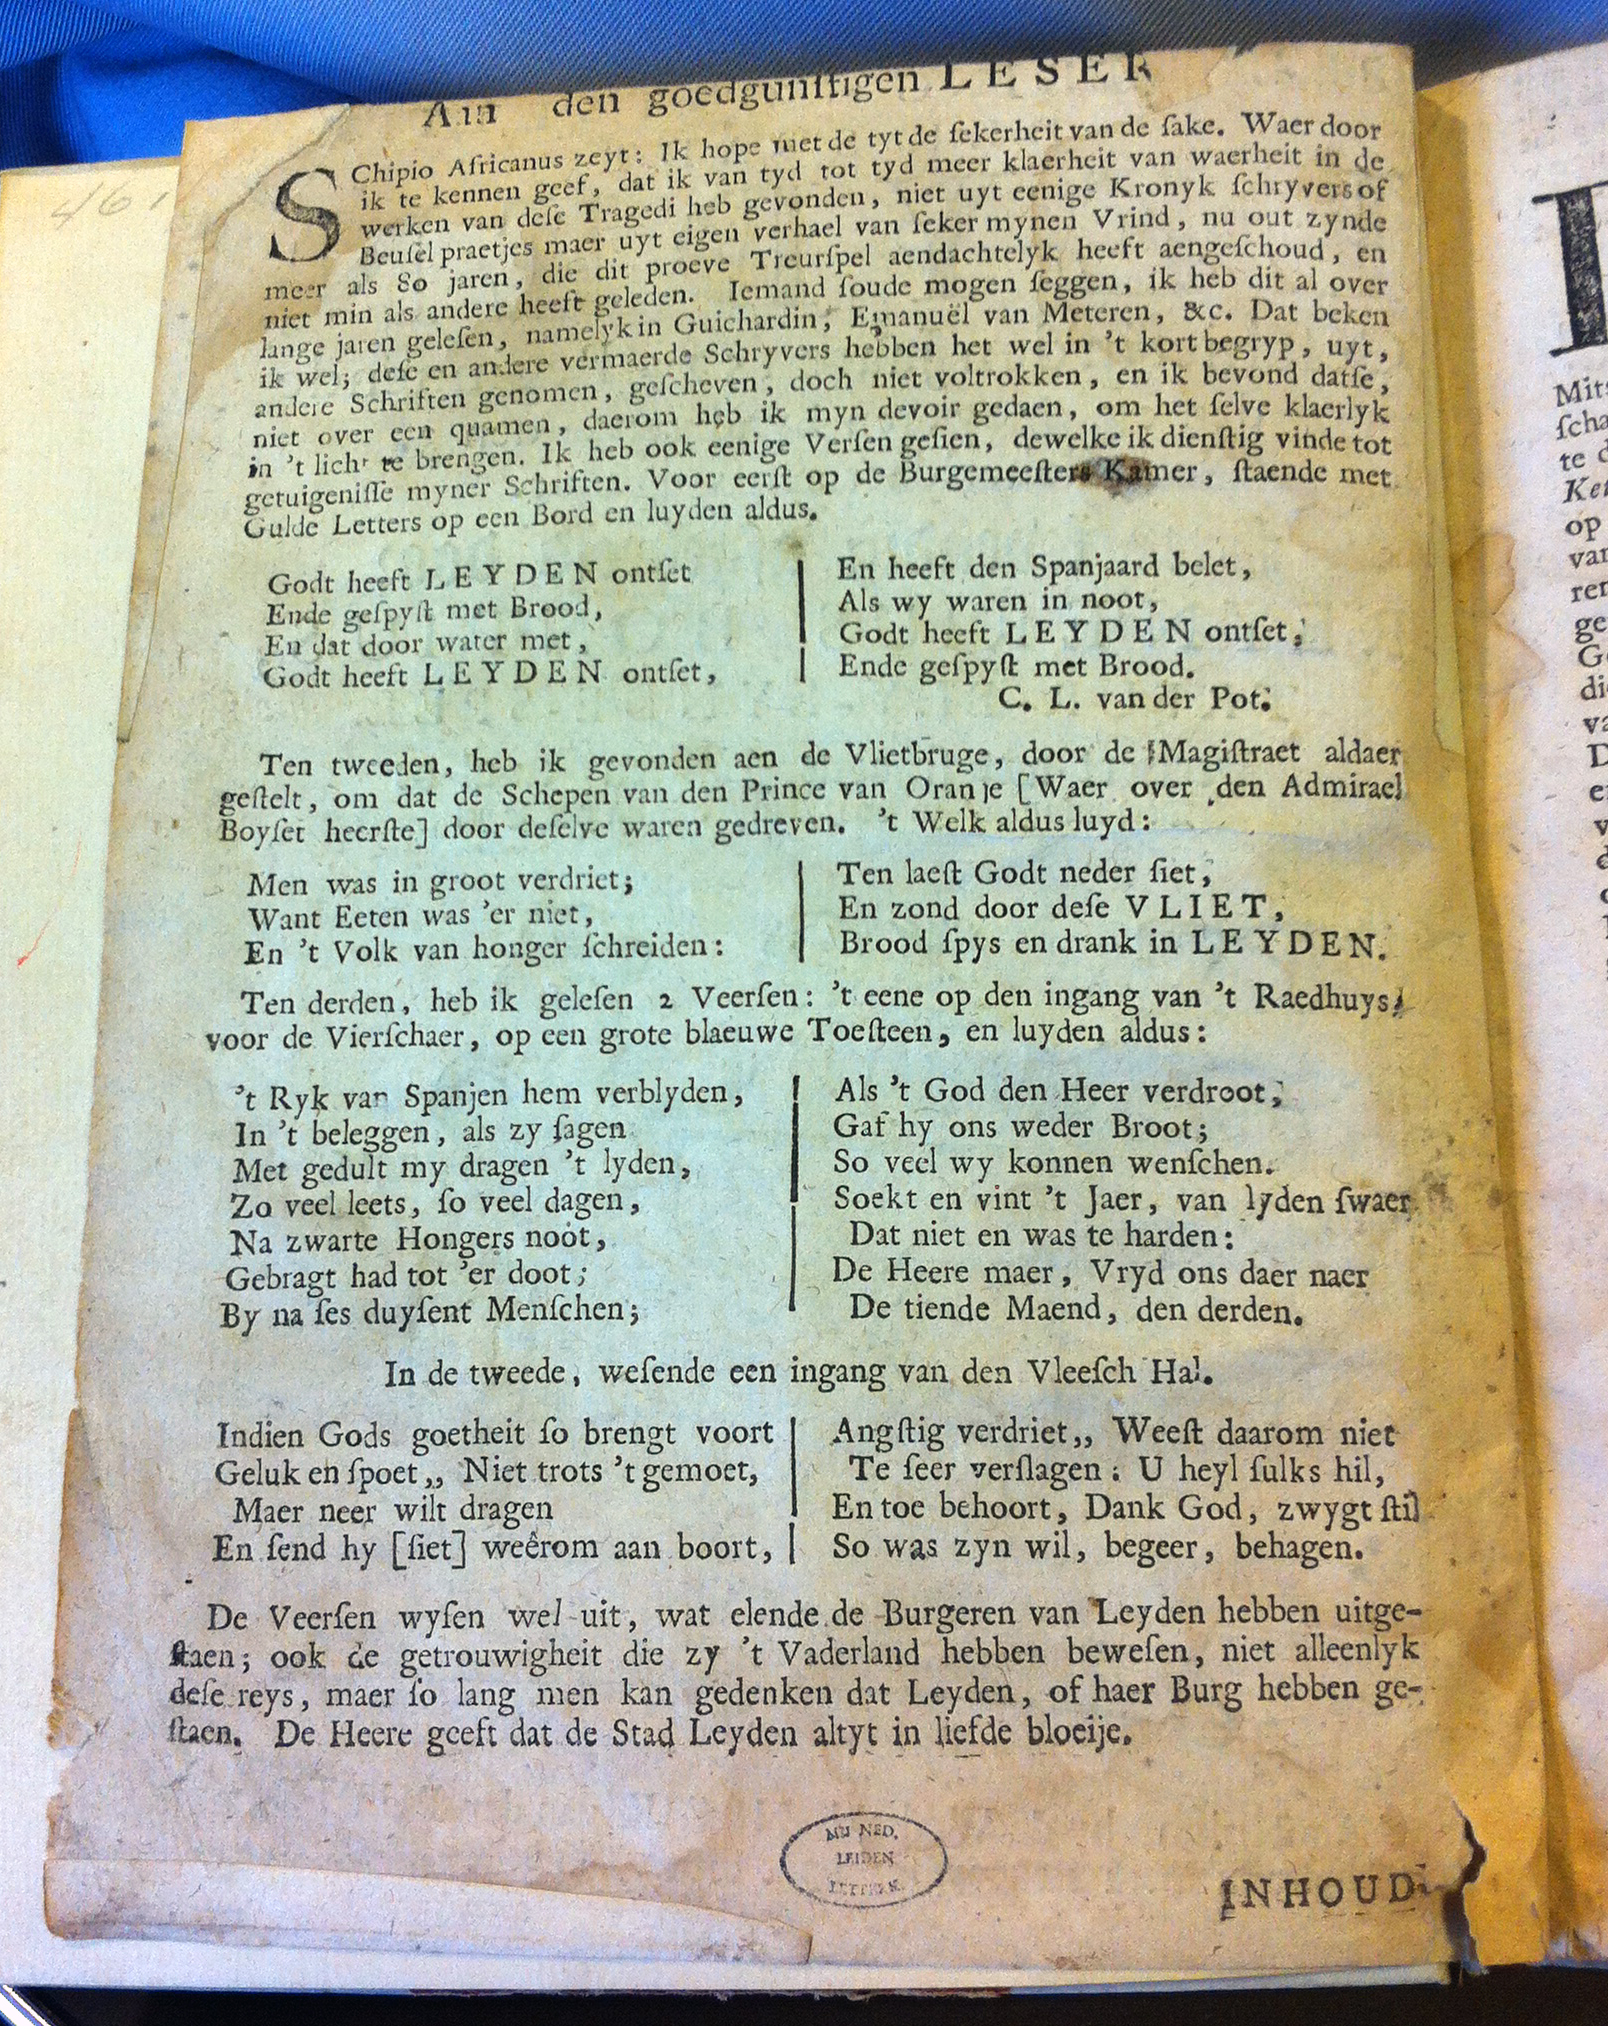 Aan den goedgunſtigen LESER
SChipio Africanus zeyt: Ik hope met de tyt de ſekerheit van de ſake. Waer door
ik te kennen geef, dat ik van tyd tot tyd meer klaerheit van waerheit in de
werken van deſe Tragedi heb gevonden, niet uyt eenige Kronyk ſchryvers of
Beuſel praetjes maer uyt eigen verhael van ſeker mynen Vrind, nu out zynde
meer als 80 jaren, die dit proeve Treurſpel aendachtelyk heeft aengeſchoud, en
niet min als andere heeft geleden. Iemand ſoude mogen ſeggen, ik heb dit al over
lange jaren geleſen, namelyk in Guichardin, Emanuël van Meteren, &c. Dat beken
ik wel; deſe en andere vermaerde Schryvers hebben het wel in 't kort begryp, uyt,
andere Schriften genomen, geſcheven, doch niet voltrokken, en ik bevond datſe,
niet over een quamen, daerom heb ik myn devoir gedaen, om het ſelve klaerlyk
in 't licht te brengen. Ik heb ook eenige Verſen geſien, dewelke ik dienſtig vinde tot
getuigeniſſe myner Schriften. Voor eerſt op de Burgemeeſters Kamer, ſtaende met
Gulde Letters op een Bord en luyden aldus.
Godt heeft LEYDEN ontſet
Ende geſpyſt met Brood,
En dat door water met,
Godt heeft LEYDEN ontſet,
En heeft den Spanjaard belet,
Als wy waren in noot,
Godt heeft LEYDEN ontſet,
Ende geſpyſt met Brood.
C. L. van der Pot.
Ten tweeden, heb ik gevonden aen de Vlietbruge, door de Magiſtraet aldaer
geſtelt, om dat de Schepen van den Prince van Oranje [Waer over den Admirael
Boyſet heerſte] door deſelve waren gedreven. 't Welk aldus luyd:
Men was in groot verdriet;
Want Eeten was 'er niet,
En 't Volk van honger ſchreiden:
Ten laeſt Godt neder ſiet,
En zond door deſe VLIET,
Brood ſpys en drank in LEYDEN.
Ten derden, heb ik geleſen 2 Veerſen: 't eene op den ingang van 't Raedhuys,
voor de Vierſchaer, op een grote blaeuwe Toeſteen, en luyden aldus:
't Ryk van Spanjen hem verblyden,
In 't beleggen, als zy ſagen
Met gedult my dragen 't lyden,
Zo veel leets, ſo veel dagen,
Na zwarte Hongers noot,
Gebragt had tot 'er doot;
By na ſes duyſent Menſchen;
Als 't God den Heer verdroot,
Gaf hy ons weder Broot;
So veel wy konnen wenſchen.
Soekt en vint 't Jaer, van lyden ſwaer
Dat niet en was te harden:
De Heere maer, Vryd ons daer naer
De tiende Maend, den derden.
In de tweede, weſende een ingang van den Vleeſch Hal.
Indien Gods goetheit ſo brengt voort
Geluk en ſpoet,, Niet trots 't gemoet,
Maer neer wilt dragen
En ſend hy [ſiet] weêrom aan boort,
Angſtig verdriet,, Weeſt daarom niet
Te ſeer verſlagen: U heyl ſulks hil,
En toe behoort, Dank God, zwygt ſtil
So was zyn wil, begeer, behagen.
De Veerſen wyſen wel uit, wat elende de Burgeren van Leyden hebben uitge-
ſtaen; ook de getrouwigheit die zy 't Vaderland hebben beweſen, niet alleenlyk
deſe reys, maer ſo lang men kan gedenken dat Leyden, of haer Burg hebben ge-
ſtaen. De Heere geeft dat de Stad Leyden altyt in liefde bloeije.
NED.
LEIDEN
LETTERK.
INHOUD